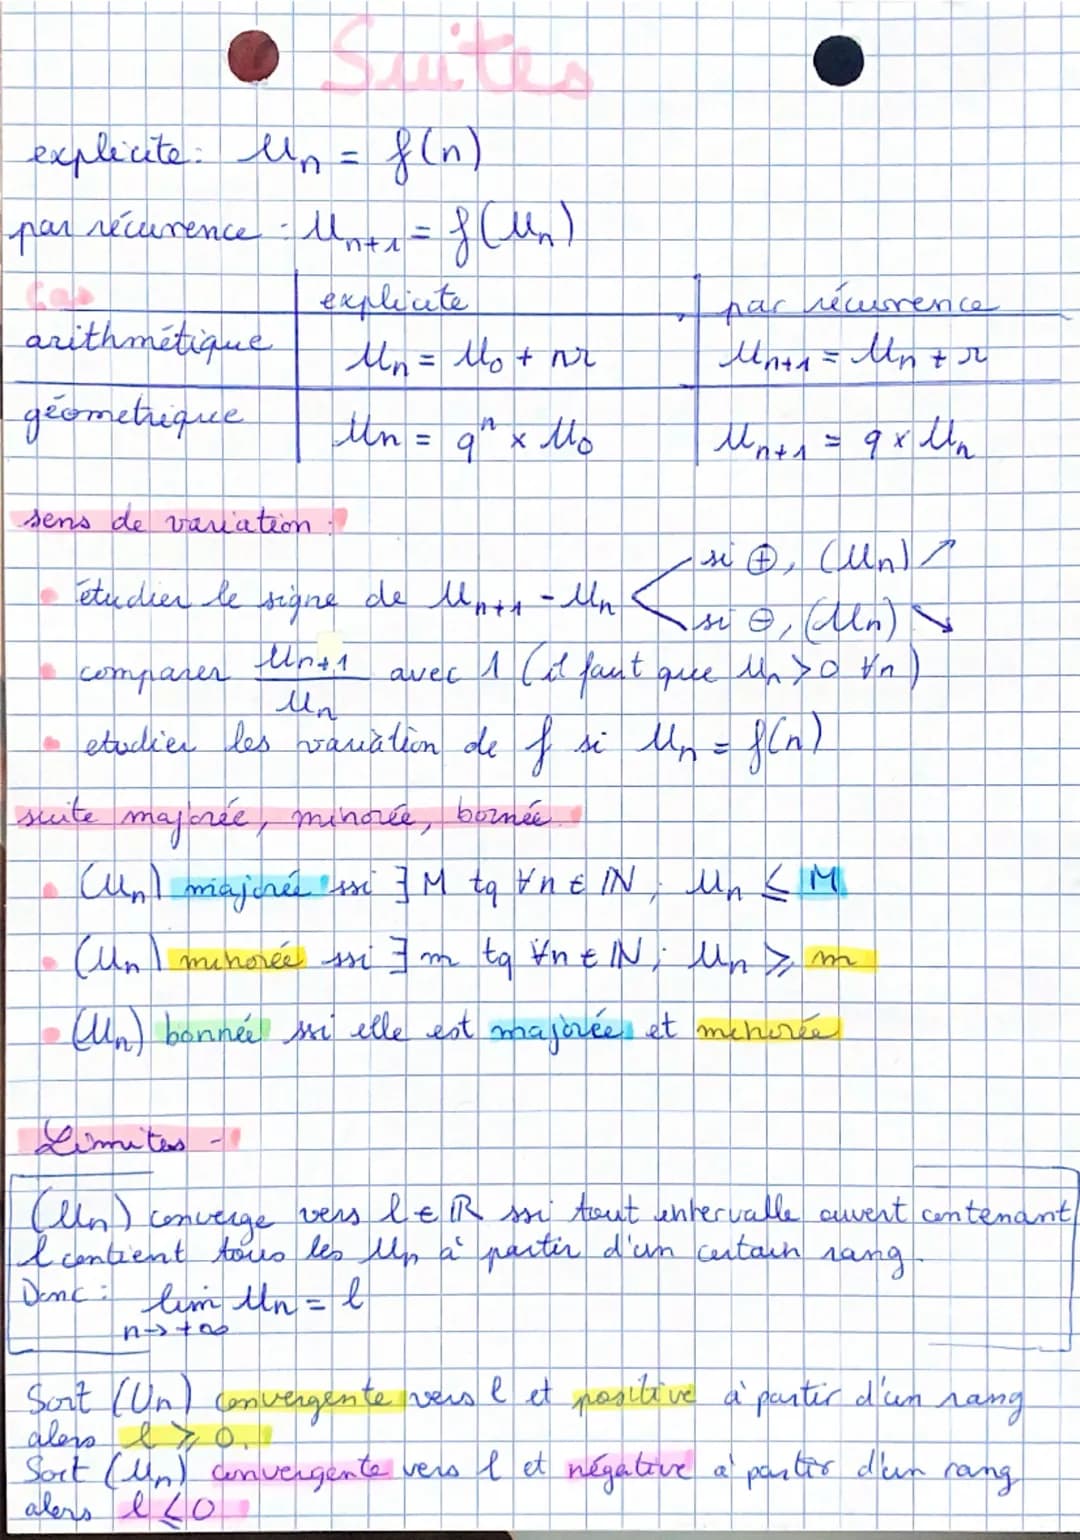 Suites
explicite: Un = f(n)
par récurrence : Un+1 = f(Un)
Cas explicite par récurrence
arithmétique Un = U0 + nr Un+1 = Un + r
géometrique Un = qⁿ x U0 Un+1 = q x Un
sens de variation :
• étudier le signe de Un+1 - Un < si ⊕, (Un) ↗
si ⊖, (Un) ↘
• comparer Un+1/Un avec 1 (il faut que Un > 0 ∀n)
• etudier les variation de f si Un = f(n)
suite majorée, minorée, bornée :
• (Un) majorée ssi ∃ M tq ∀n ∈ ℕ ; Un ≤ M
• (Un) minorée ssi ∃ m tq ∀n ∈ ℕ ; Un ≥ m
• (Un) bornée ssi elle est majorée et minorée
Limites -
(Un) converge vers l ∈ ℝ ssi tout intervalle ouvert contenant
l contient tous les Un à partir d'un certain rang.
Donc : lim Un = l
n→+∞
Soit (Un) convergente vers l et positive à partir d'un rang
alors l ≥ 0.
Soit (Un) convergente vers l et négative à partir d'un rang
alors l ≤ 0